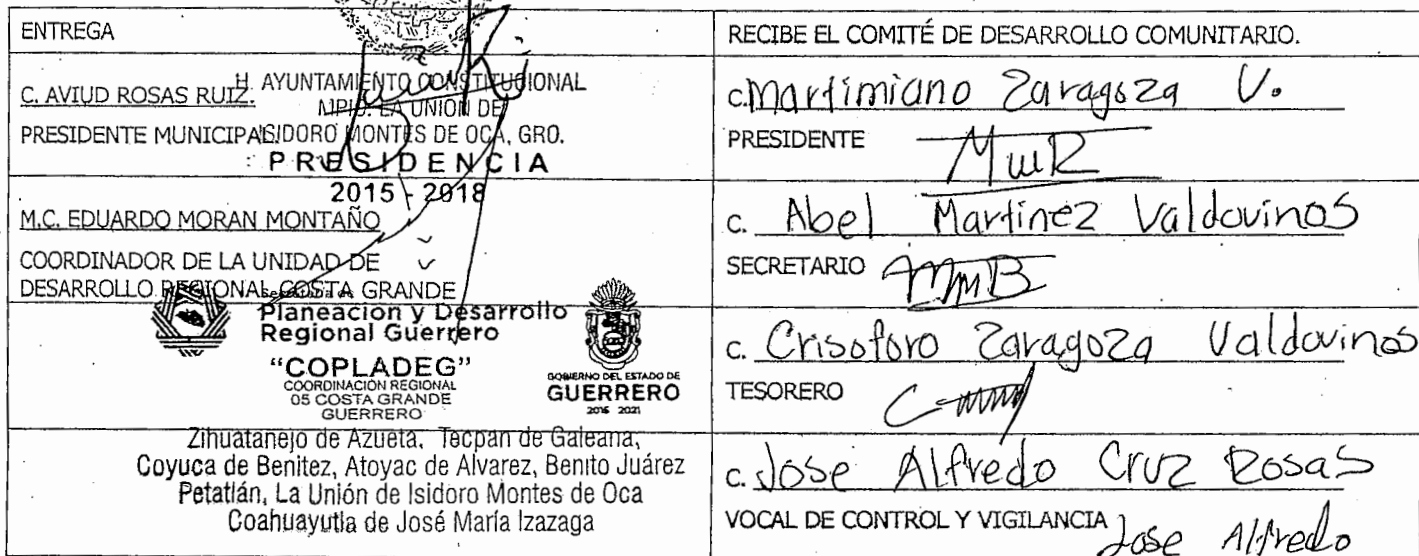 ENTREGA
C. AVIUD ROSAS RUIZ.
PRESIDENTE MUNICIPAL
H. AYUNTAMIENTO CONSTITUCIONAL
MPIO. LA UNION DE
ISIDORO MONTES DE OCA, GRO.
PRESIDENCIA
2015 - 2018
M.C. EDUARDO MORAN MONTAÑO
COORDINADOR DE LA UNIDAD DE
DESARROLLO REGIONAL COSTA GRANDE
Planeación y Desarrollo
Regional Guerrero
"COPLADEG"
COORDINACIÓN REGIONAL
05 COSTA GRANDE
GUERRERO
GOBIERNO DEL ESTADO DE
GUERRERO
2015 2021
Zihuatanejo de Azueta, Tecpan de Galeana,
Coyuca de Benitez, Atoyac de Alvarez, Benito Juárez
Petatlán, La Unión de Isidoro Montes de Oca
Coahuayutla de José María Izazaga
RECIBE EL COMITÉ DE DESARROLLO COMUNITARIO.
C. Martimiano Zaragoza V.
PRESIDENTE
C. Abel Martinez Valdovinos
SECRETARIO
C. Crisoforo Zaragoza Valdovinos
TESORERO
C. Jose Alfredo Cruz Rosas
VOCAL DE CONTROL Y VIGILANCIA Jose Alfredo